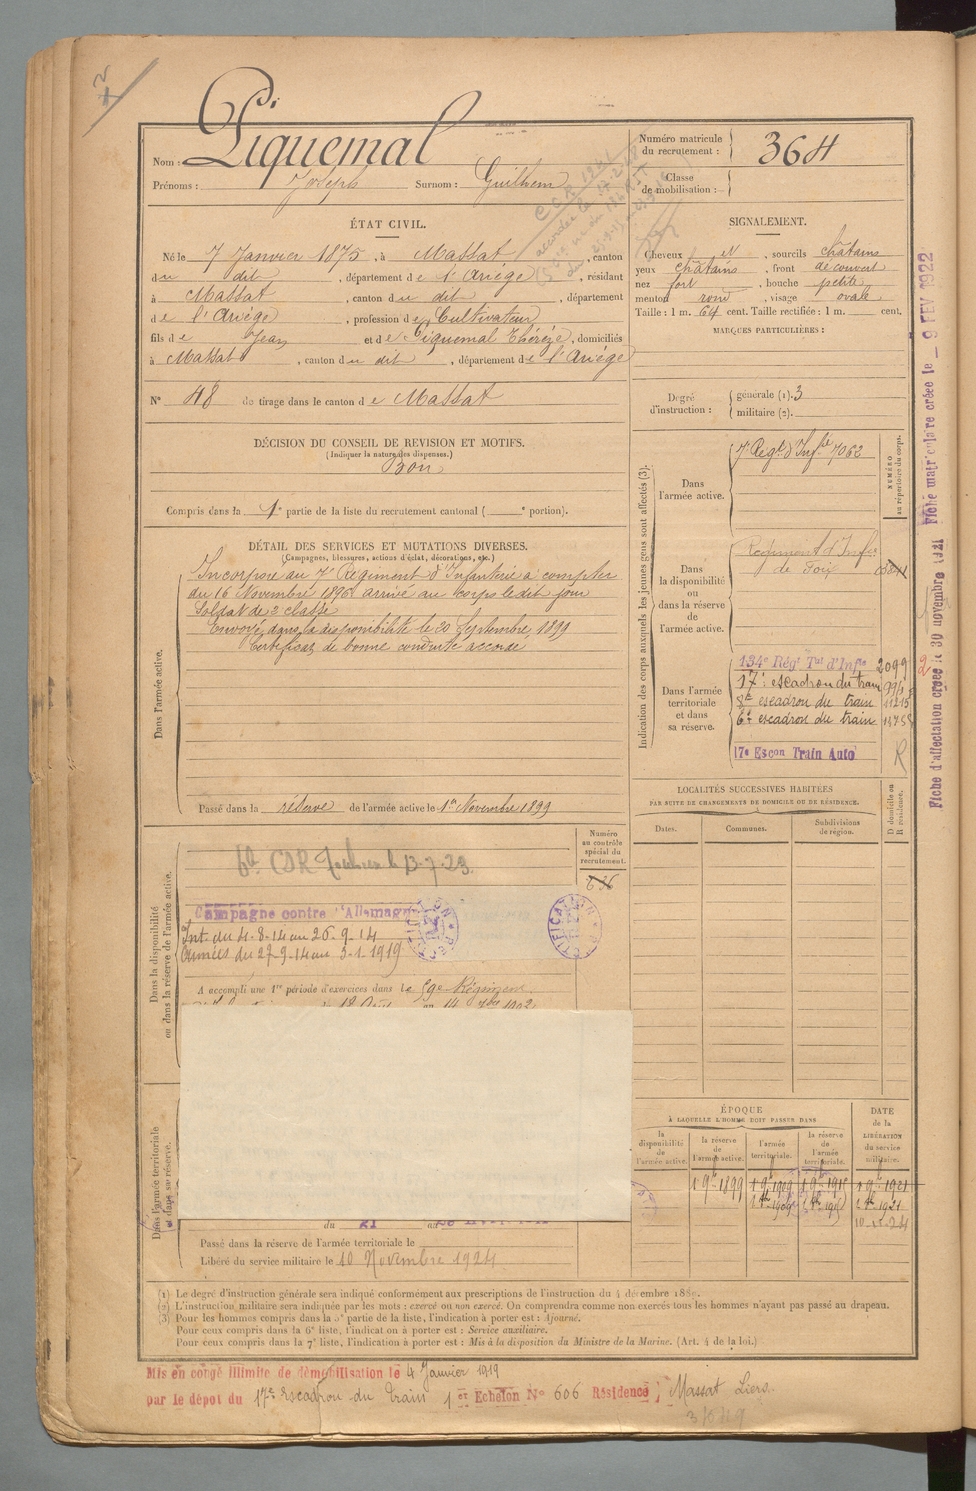 Piquemal
Nom :
Prénoms : Joseph Surnom : Guilhem
Numéro matricule du recrutement : 364
Classe de mobilisation :
ÉTAT CIVIL.
Né le 7 Janvier 1875, à Massat, canton
du dit, département de l'Ariège, résidant
à Massat, canton du dit, département
de l'Ariège, profession de Cultivateur
fils de Jean et de Piquemal Thérèze, domiciliés
à Massat, canton du dit, département de l'Ariège
N° 48 de tirage dans le canton de Massat
SIGNALEMENT.
Cheveux et, sourcils châtains
yeux châtains, front découvert
nez fort, bouche petite
menton rond, visage ovale
Taille : 1 m. 64 cent. Taille rectifiée : 1 m. cent.
MARQUES PARTICULIÈRES :
Degré d'instruction : générale (1). 3
militaire (2).
DÉCISION DU CONSEIL DE REVISION ET MOTIFS.
(Indiquer la nature des dispenses.)
Bon
Compris dans la 1e partie de la liste du recrutement cantonal ( e portion).
DÉTAIL DES SERVICES ET MUTATIONS DIVERSES.
(Campagnes, blessures, actions d'éclat, décorations, etc.)
Dans l'armée active.
Incorporé au 7e Régiment d'Infanterie à compter
du 16 Novembre 1896 arrivé au corps le dit jour
Soldat de 2e classe
Envoyé dans la disponibilité le 20 Septembre 1899
Certificat de bonne conduite accordé
Passé dans la réserve de l'armée active le 1er Novembre 1899
Indication des corps auxquels les jeunes gens sont affectés (3).
NUMÉRO au répertoire du corps.
Dans l'armée active.
7e Régt d'Infie 7062
Dans la disponibilité ou dans la réserve de l'armée active.
Régiment d'Infie
de Foix
Dans l'armée territoriale et dans sa réserve.
134e Régt Tal d'Infie 2099
17e escadron du train
8e escadron du train
6e escadron du train
17e Escon Train Auto R
LOCALITÉS SUCCESSIVES HABITÉES
PAR SUITE DE CHANGEMENTS DE DOMICILE OU DE RÉSIDENCE.
Dates.
Communes.
Subdivisions de région.
D domicile ou R résidence.
Dans la disponibilité ou dans la réserve de l'armée active.
Numéro au contrôle spécial du recrutement.
636
Campagne contre l'Allemagne
Int. du 4-8-14 au 26-9-14
Armées du 27-9-14 au 3-1-1919
A accompli une 1re période d'exercices dans le 59e Régiment
Dans l'armée territoriale et dans sa réserve.
du 21 au
Passé dans la réserve de l'armée territoriale le
Libéré du service militaire le 10 Novembre 1924
ÉPOQUE
À LAQUELLE L'HOMME DOIT PASSER DANS
la disponibilité de l'armée active.
la réserve de l'armée active.
l'armée territoriale.
la réserve de l'armée territoriale.
DATE de la LIBÉRATION du service militaire.
1 9b 1899
(1) Le degré d'instruction générale sera indiqué conformément aux prescriptions de l'instruction du 4 décembre 1889.
(2) L'instruction militaire sera indiquée par les mots : exercé ou non exercé. On comprendra comme non exercés tous les hommes n'ayant pas passé au drapeau.
(3) Pour les hommes compris dans la 5e partie de la liste, l'indication à porter est : Ajourné.
Pour ceux compris dans la 6e liste, l'indication à porter est : Service auxiliaire.
Pour ceux compris dans la 7e liste, l'indication à porter est : Mis à la disposition du Ministre de la Marine. (Art. 4 de la loi.)
Mis en congé illimité de démobilisation le 4 Janvier 1919
par le dépôt du 17e Escadron du Train 1er Echelon N° 606 Résidence : Massat Liers
Fiche d'affectation créée le 30 novembre 1921 Fiche matriculaire créée le 9 FEV 1922